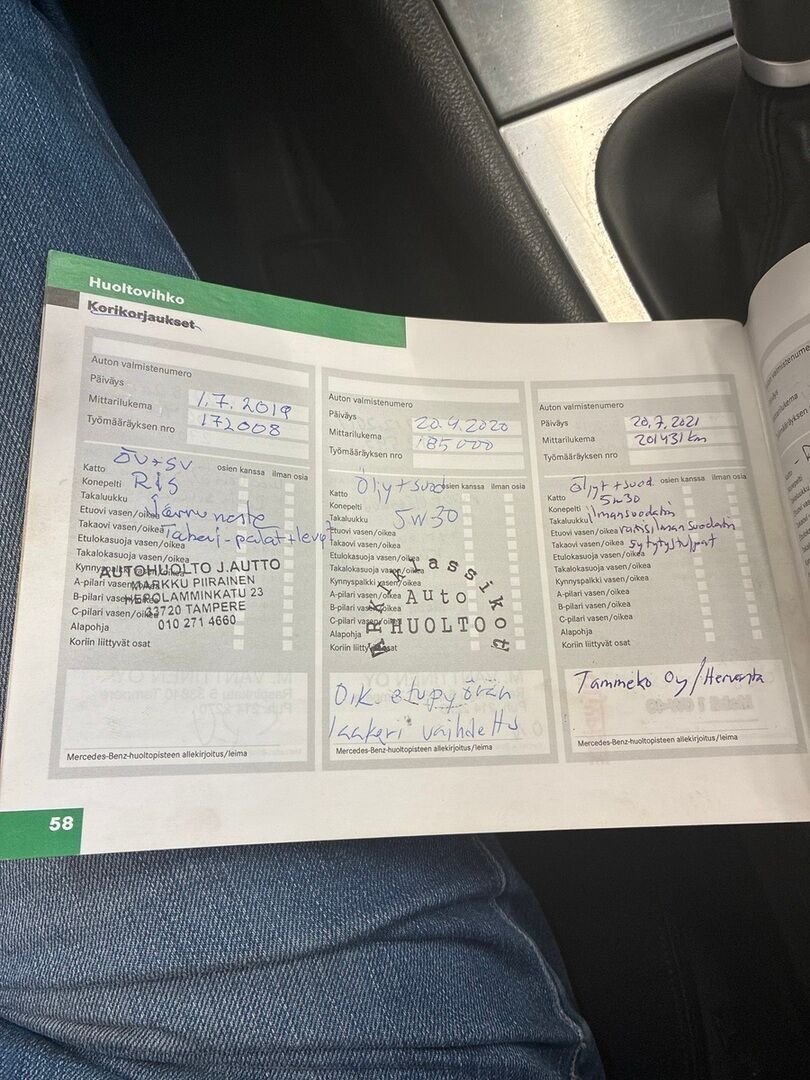 Huoltovihko
Korikorjaukset
Auton valmistenumero
Päiväys
1.7.2019
Mittarilukema
172008
Työmääräyksen nro
ÖV+SV
osien kanssa ilman osia
Katto
RIS
Konepelti
Takaluukku
Jarruneste
Etuovi vasen/oikea
Takaovi vasen/oikea
Takavi-palat+levyt
Etulokasuoja vasen/oikea
Takalokasuoja vasen/oikea
Kynnyspalkki vasen/oikea
A-pilari vasen/oikea
B-pilari vasen/oikea
C-pilari vasen/oikea
Alapohja
Koriin liittyvät osat
AUTOHUOLTO J.AUTTO
MARKKU PIIRAINEN
HEPOLAMMINKATU 23
33720 TAMPERE
010 271 4660
Mercedes-Benz-huoltopisteen allekirjoitus/leima
Auton valmistenumero
Päiväys
20.4.2020
Mittarilukema
185000
Työmääräyksen nro
Öljy+suod
osien kanssa ilman osia
Katto
Konepelti
5W30
Takaluukku
Etuovi vasen/oikea
Takaovi vasen/oikea
Etulokasuoja vasen/oikea
Takalokasuoja vasen/oikea
Kynnyspalkki vasen/oikea
A-pilari vasen/oikea
B-pilari vasen/oikea
C-pilari vasen/oikea
Alapohja
Koriin liittyvät osat
Auto
HUOLTO
Oik. etupyörän
laakeri vaihdettu
Mercedes-Benz-huoltopisteen allekirjoitus/leima
Auton valmistenumero
Päiväys
20.7.2021
Mittarilukema
201431 km
Työmääräyksen nro
Öljyt+suod.
osien kanssa ilman osia
Katto
5w30
Konepelti
ilmansuodatin
Takaluukku
Etuovi vasen/oikea
raitisilmansuodatin
Takaovi vasen/oikea
sytytystulpat
Etulokasuoja vasen/oikea
Takalokasuoja vasen/oikea
Kynnyspalkki vasen/oikea
A-pilari vasen/oikea
B-pilari vasen/oikea
C-pilari vasen/oikea
Alapohja
Koriin liittyvät osat
Tammeko Oy/Hervanta
Mercedes-Benz-huoltopisteen allekirjoitus/leima
58